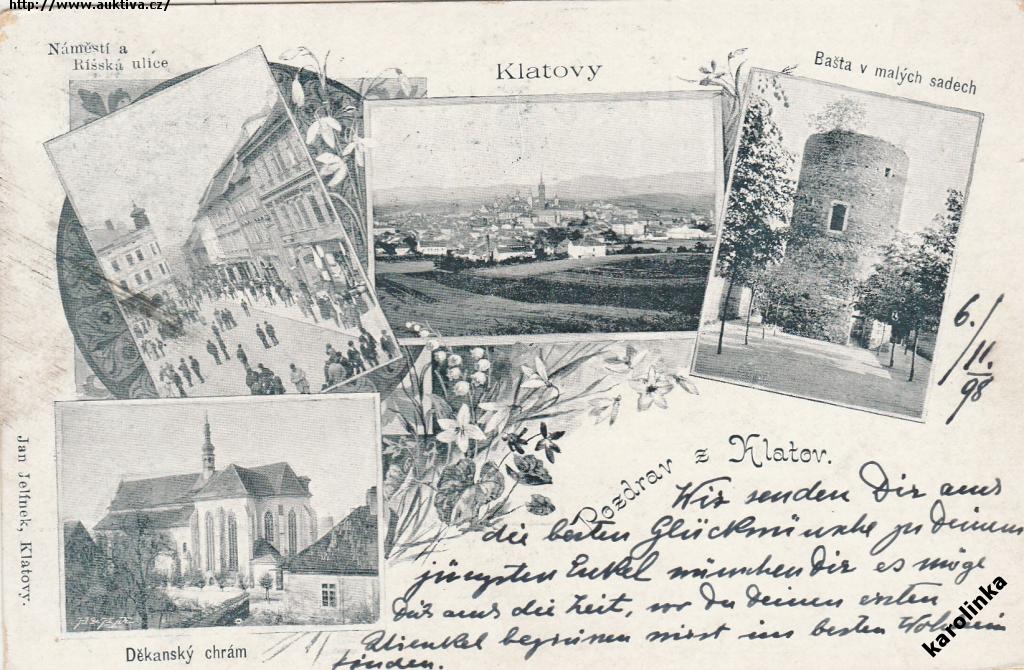 http://www.auktiva.cz/
Náměstí a
Říšská ulice
Klatovy
Bašta v malých sadech
6./11. 98
Jan Jelínek, Klatovy.
Děkanský chrám
Pozdrav z Klatov.
Wir senden Dir aus
die besten Glückwünsche zu Deinem
jüngsten Enkel wünschen Dir es möge
aus die Zeit, wo Du Deinen ersten
Urenkel begrüssen wirst im besten Wohlsein
finden.
karolinka